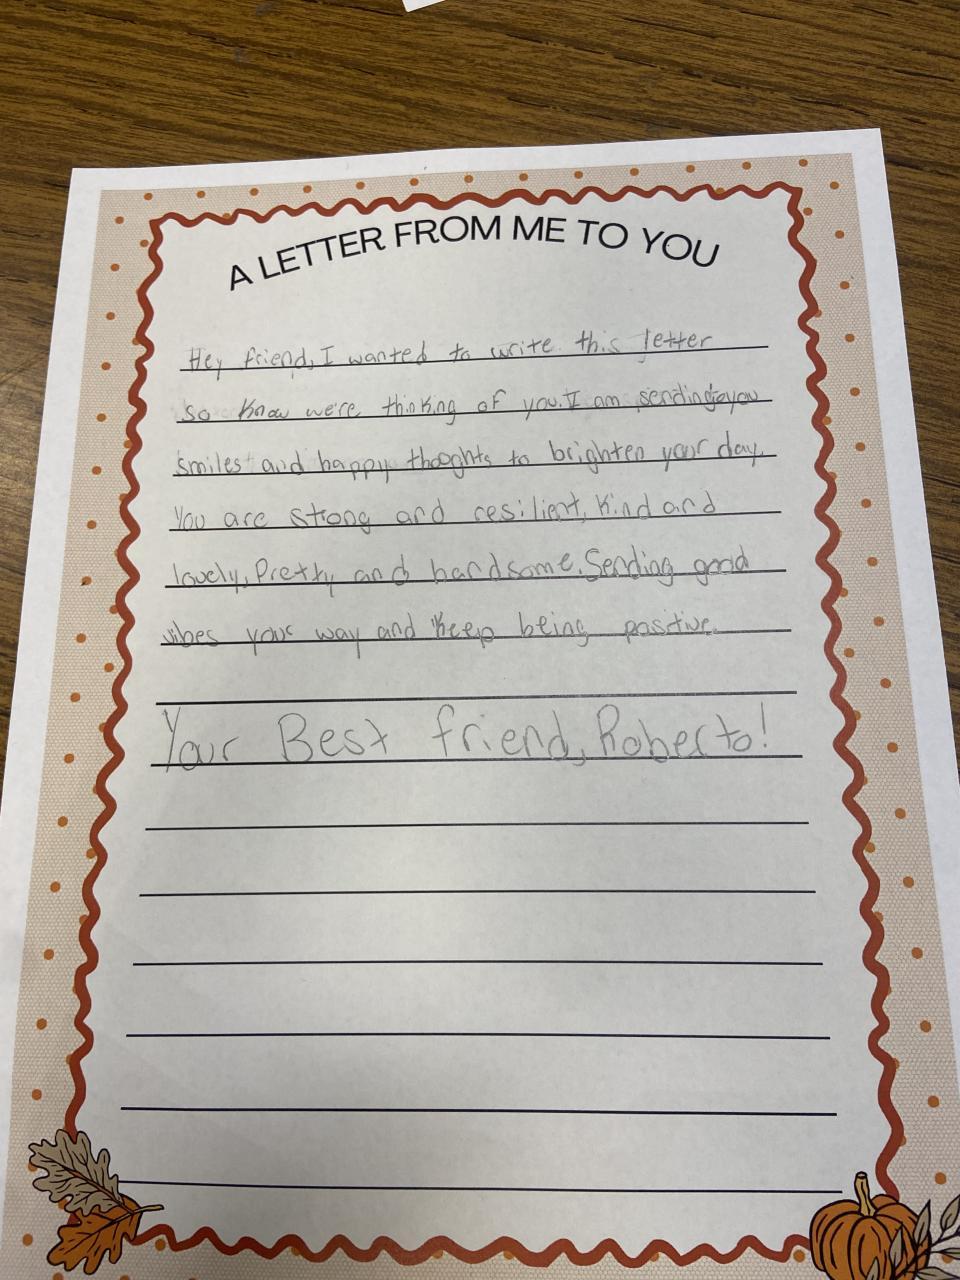 A LETTER FROM ME TO YOU
Hey friend, I wanted to write this letter
so know we're thinking of you. I am sending to you
smiles and happy thoghts to brighten your day.
You are strong and resilient, kind and
lovely, Pretty and handsome. Sending good
vibes your way and keep being positive.
Your Best friend, Roberto!